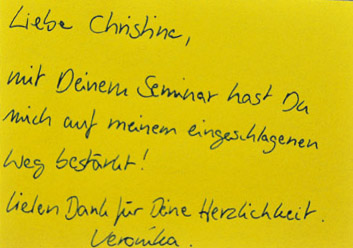 Liebe Christine,
mit Deinem Seminar hast Du
mich auf meinem eingeschlagenen
Weg bestärkt!
Vielen Dank für Deine Herzlichkeit.
Veronika.